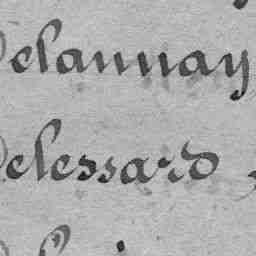 Delaunay
Delessard,